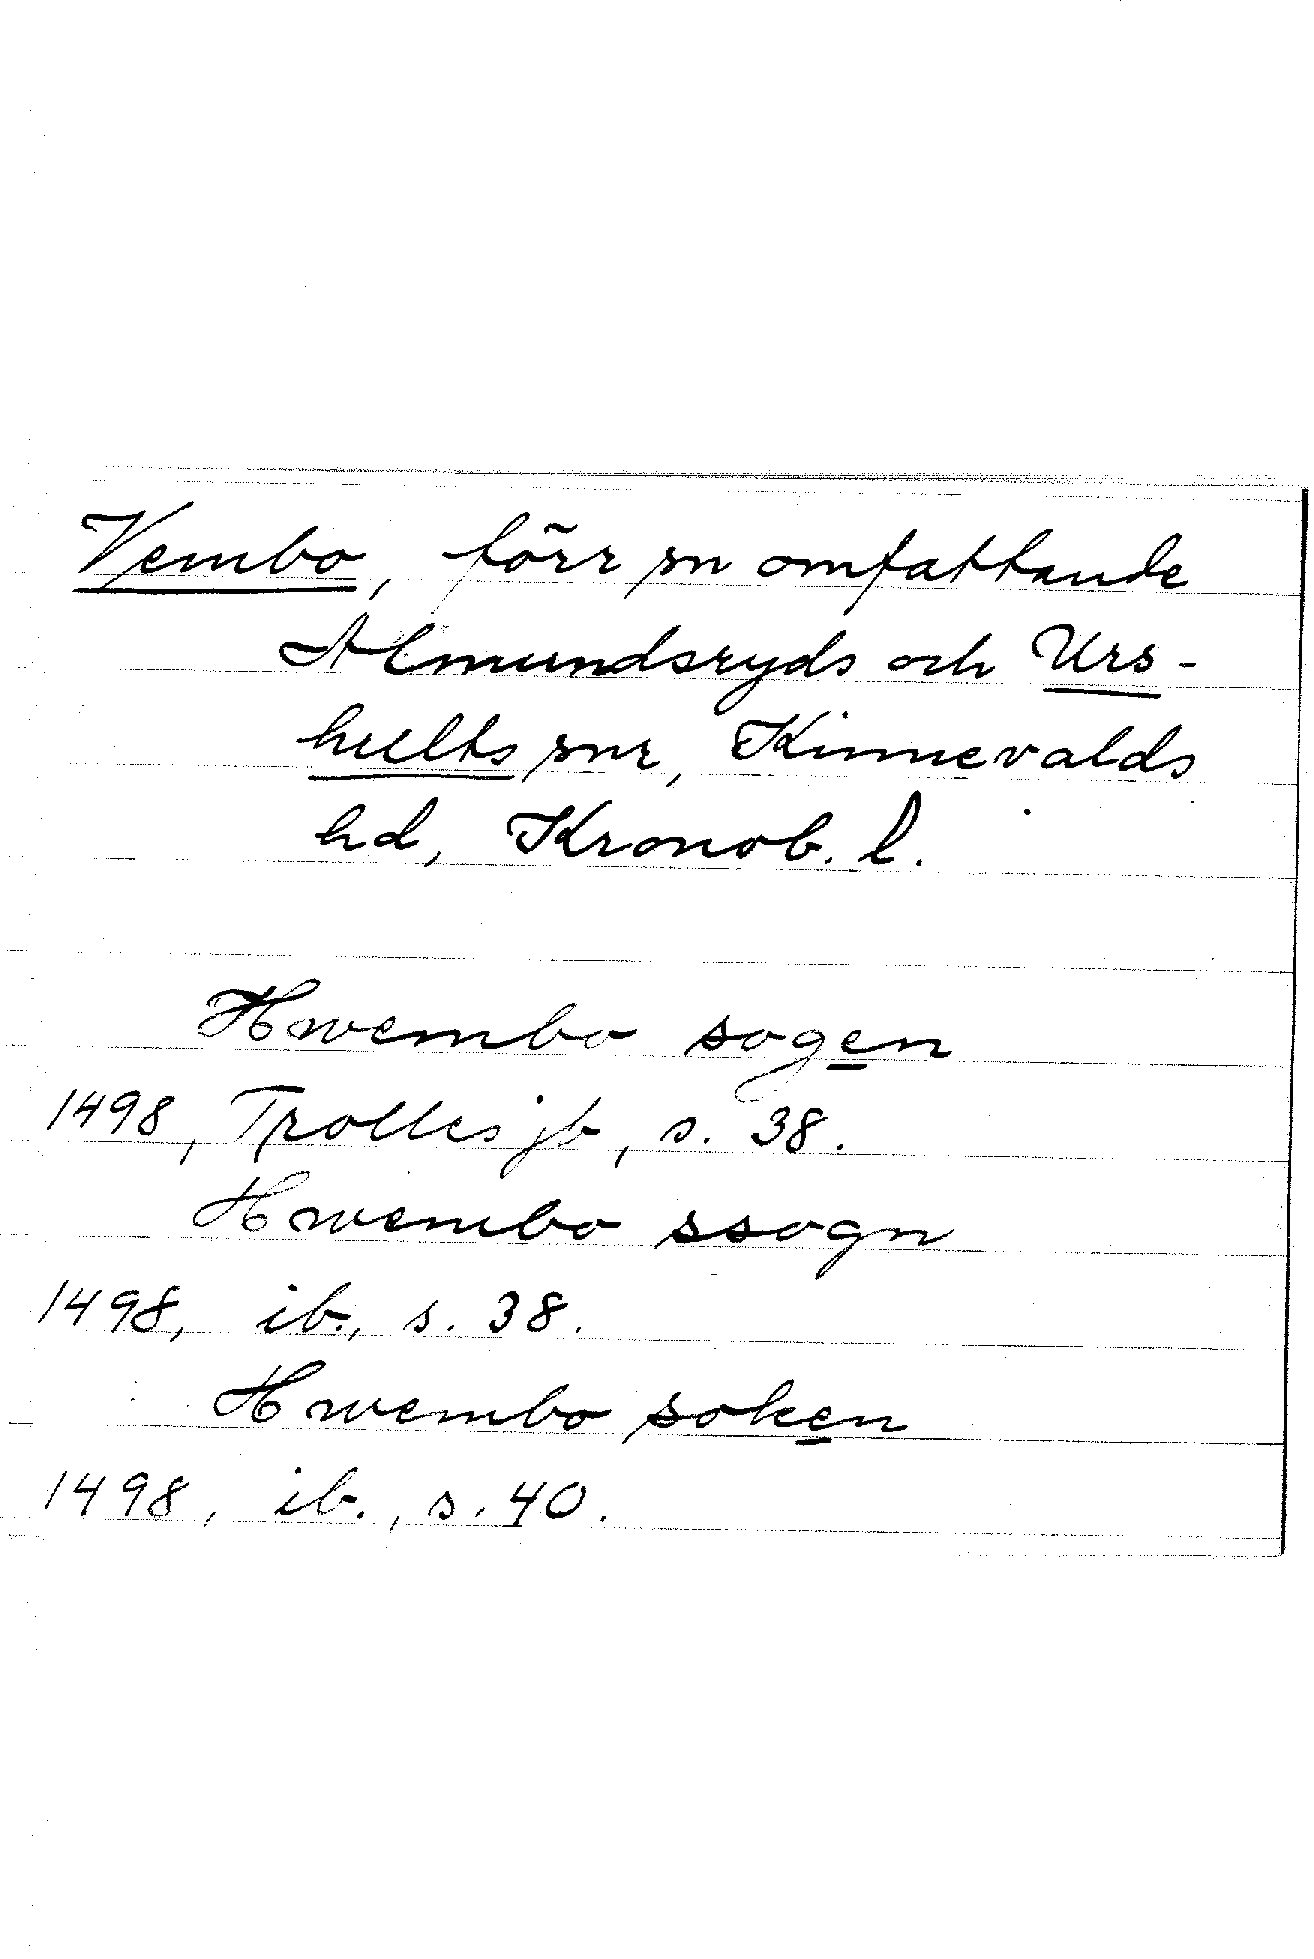 Vembo, förr sn omfattande
Almundsryds och Urs-
hults snr, Kinnevalds
hd, Kronob. l.
Hwembo sogen
1498, Trolles jb, s. 38.
Hwembo ssogn
1498, ib., s. 38.
Hwembo soken
1498, ib., s. 40.